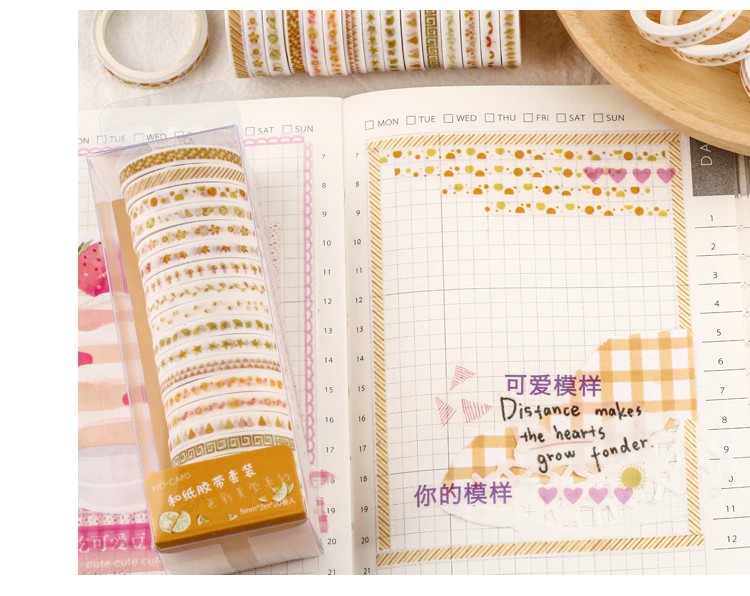 MON TUE WED THU FRI SAT SUN
TUE WED
SAT SUN
7
8
9
10
11
12
13
14
15
16
17
18
19
20
21
7
8
9
10
11
12
13
14
15
16
17
18
19
20
21
DA
1
2
3
4
5
6
7
8
9
10
11
12
可爱模样
Distance makes
the hearts
grow fonder.
你的模样
MO·CARD
和纸胶带套装
可爱
cute cute cute